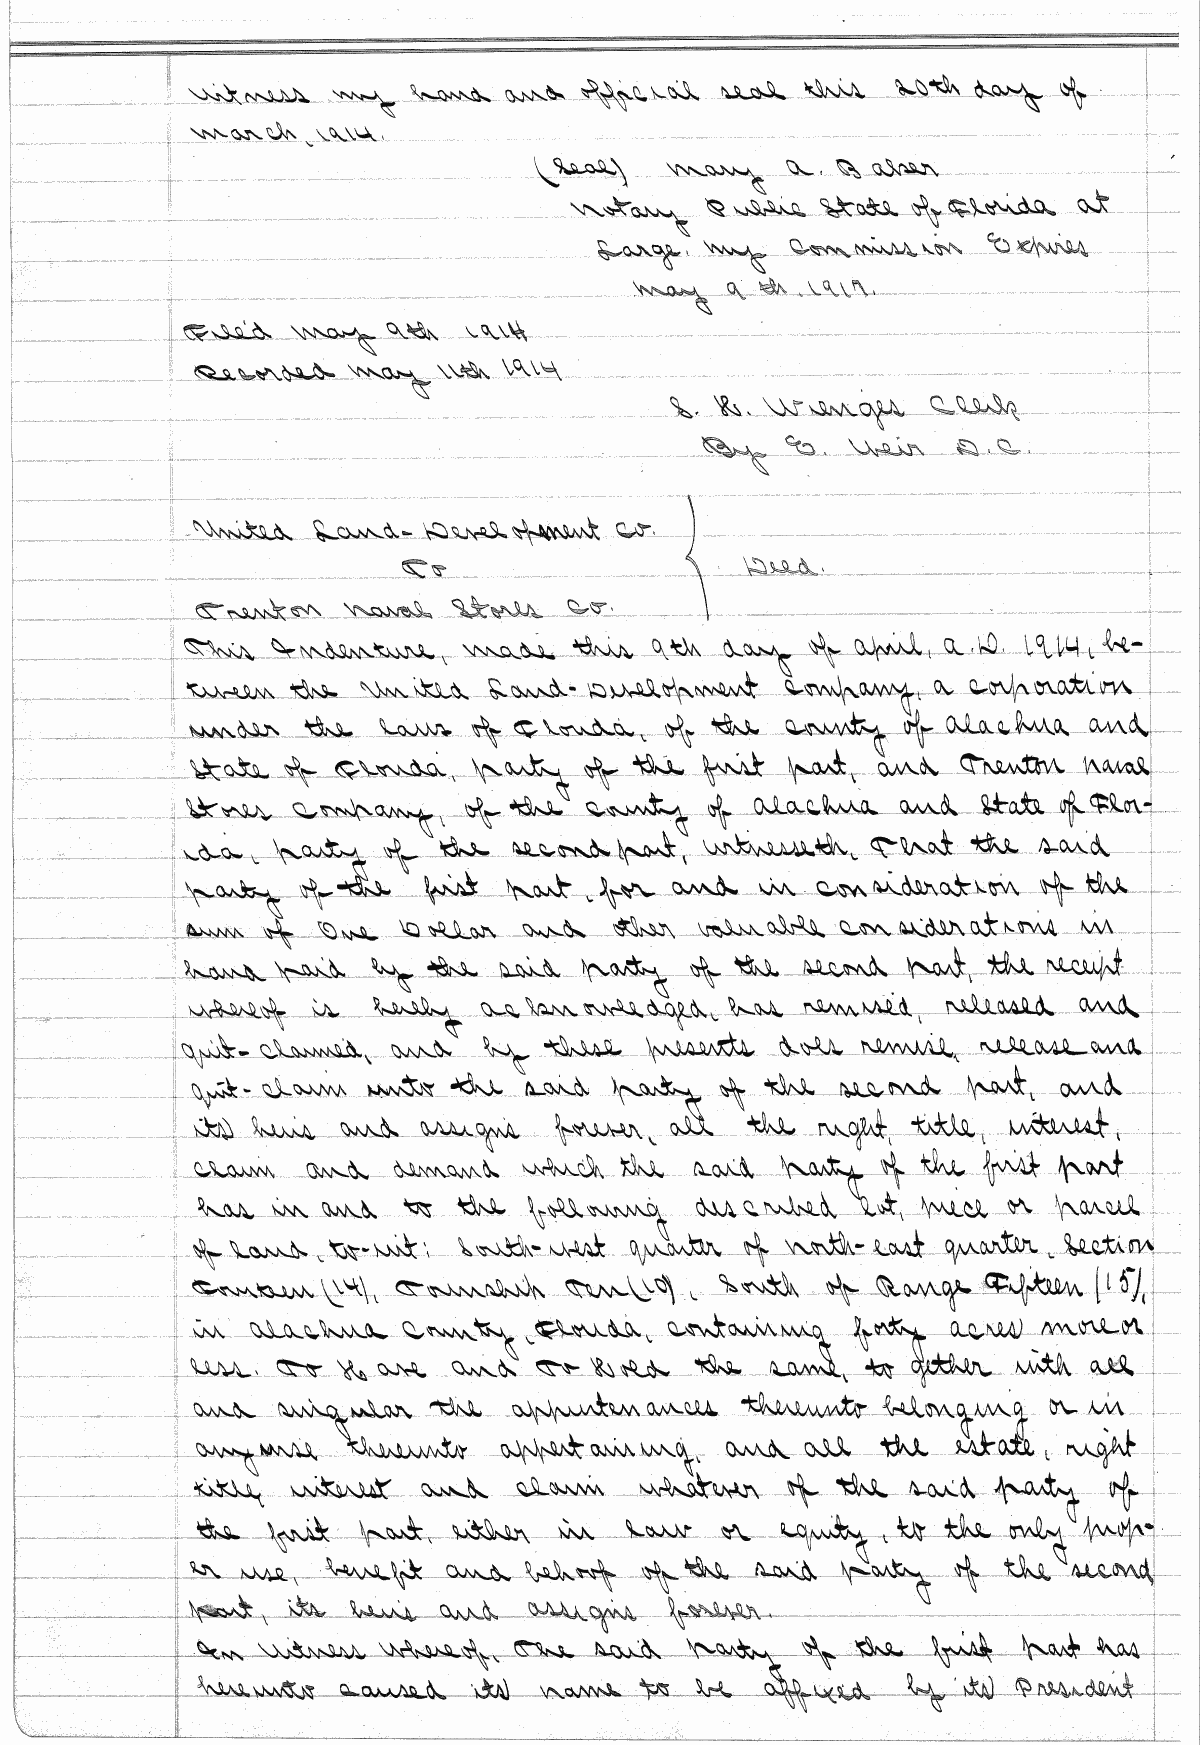 Witness my hand and official seal this 20th day of
March, 1914.
(Seal) Mary A. Baker
Notary Public State of Florida at
Large. My Commission Expires
May 9th, 1917.
Filed May 9th 1914
Recorded May 11th 1914
S. H. Wienges Clerk
By E. Weir D.C.
United Land-Development Co.
To
Deed.
Trenton Naval Stores Co.
This Indenture, made this 9th day of April, A.D. 1914, be-
tween the United Land-Development Company, a corporation
under the laws of Florida, of the county of Alachua and
State of Florida, party of the first part, and Trenton Naval
Stores Company, of the county of Alachua and State of Flor-
ida, party of the second part, witnesseth, That the said
party of the first part, for and in consideration of the
sum of One Dollar and other valuable considerations in
hand paid by the said party of the second part, the receipt
whereof is hereby acknowledged, has remised, released and
quit-claimed, and by these presents does remise, release and
quit-claim unto the said party of the second part, and
its heirs and assigns forever, all the right, title, interest,
claim and demand which the said party of the first part
has in and to the following described lot, piece or parcel
of land, to-wit: South-west quarter of north-east quarter, Section
Fourteen (14), Township Ten (10), South of Range Fifteen (15),
in Alachua County, Florida, containing forty acres more or
less. To Have and To Hold the same, to gether with all
and singular the appurtenances thereunto belonging or in
anywise thereunto appertaining, and all the estate, right
title, interest and claim whatever of the said party of
the first part, either in law or equity, to the only prop-
er use, benefit and behoof of the said party of the second
part, its heirs and assigns forever.
In Witness Whereof, The said party of the first part has
hereunto caused its name to be affixed by its President